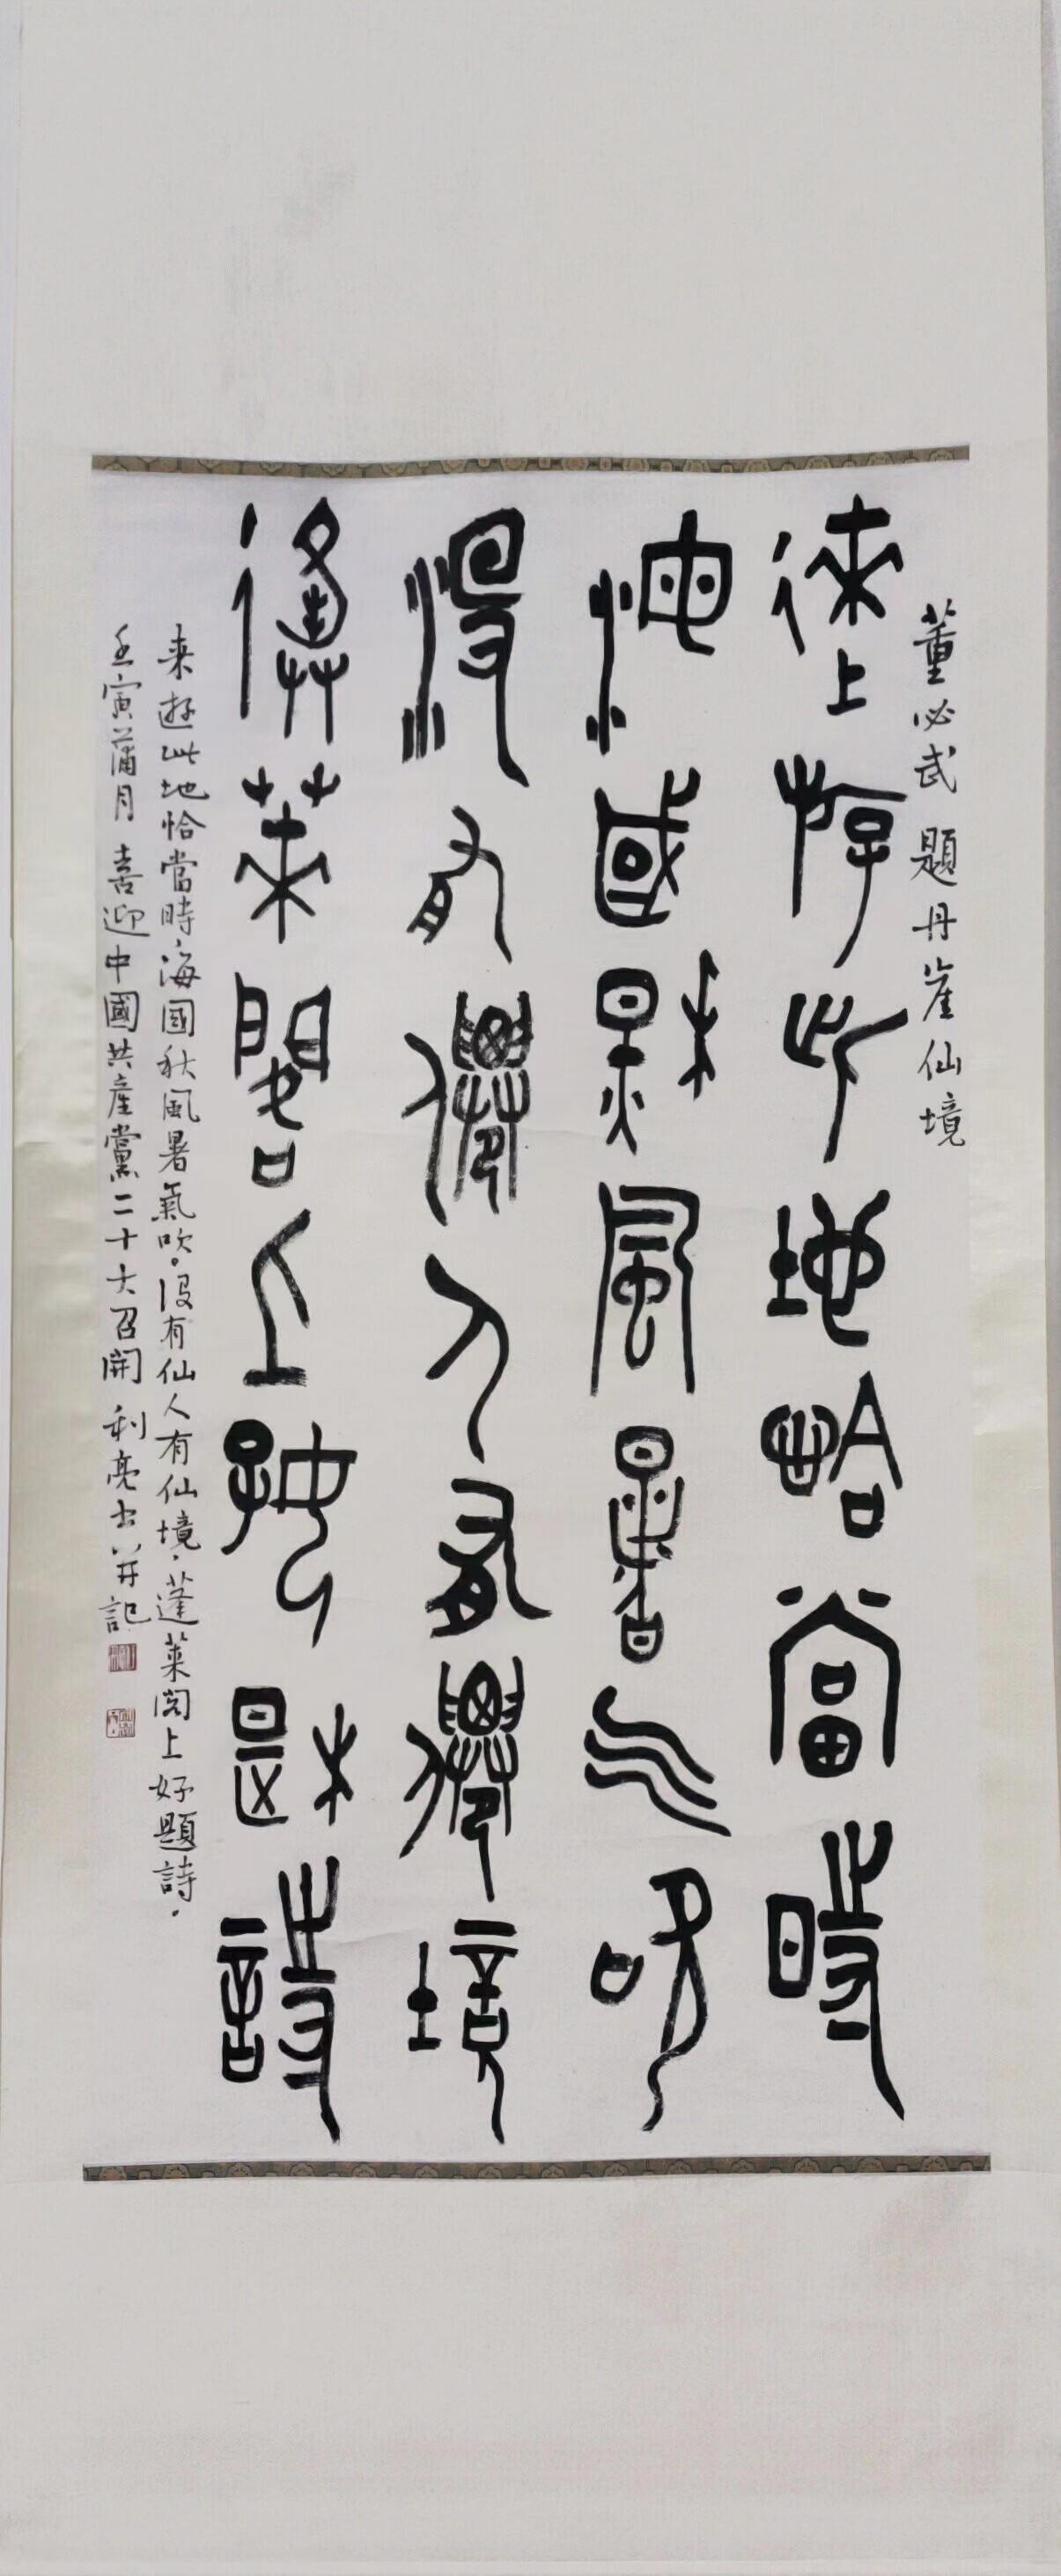 董必武 題丹崖仙境
來遊此地恰當時
海國秋風暑气吹
沒有僊人有僊境
蓬萊閣上好題詩
来遊此地恰當時，海國秋風暑氣吹。沒有仙人有仙境，蓬萊閣上好題詩。
壬寅蒲月 喜迎中國共産黨二十大召開 利亮書并記